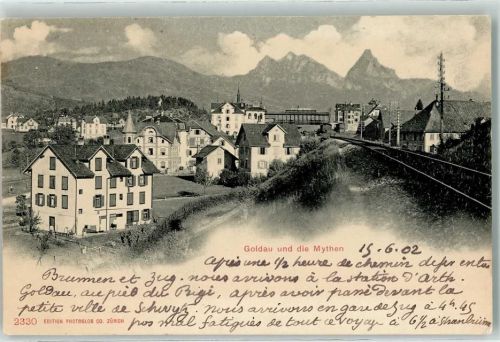 Goldau und die Mythen
15.6.02
Après une 1/2 heure de chemin de fer entre
Brunnen et Zug. nous arrivons à la station d'Arth.
Goldau, au pied du Rigi, après avoir passé devant la
petite ville de Schwyz. Nous arrivons en gare de Zug à 4h.45
pas mal fatigués de tout ce voyage à 6 1/2 à
2330 EDITION PHOTOGLOB CO. ZÜRICH